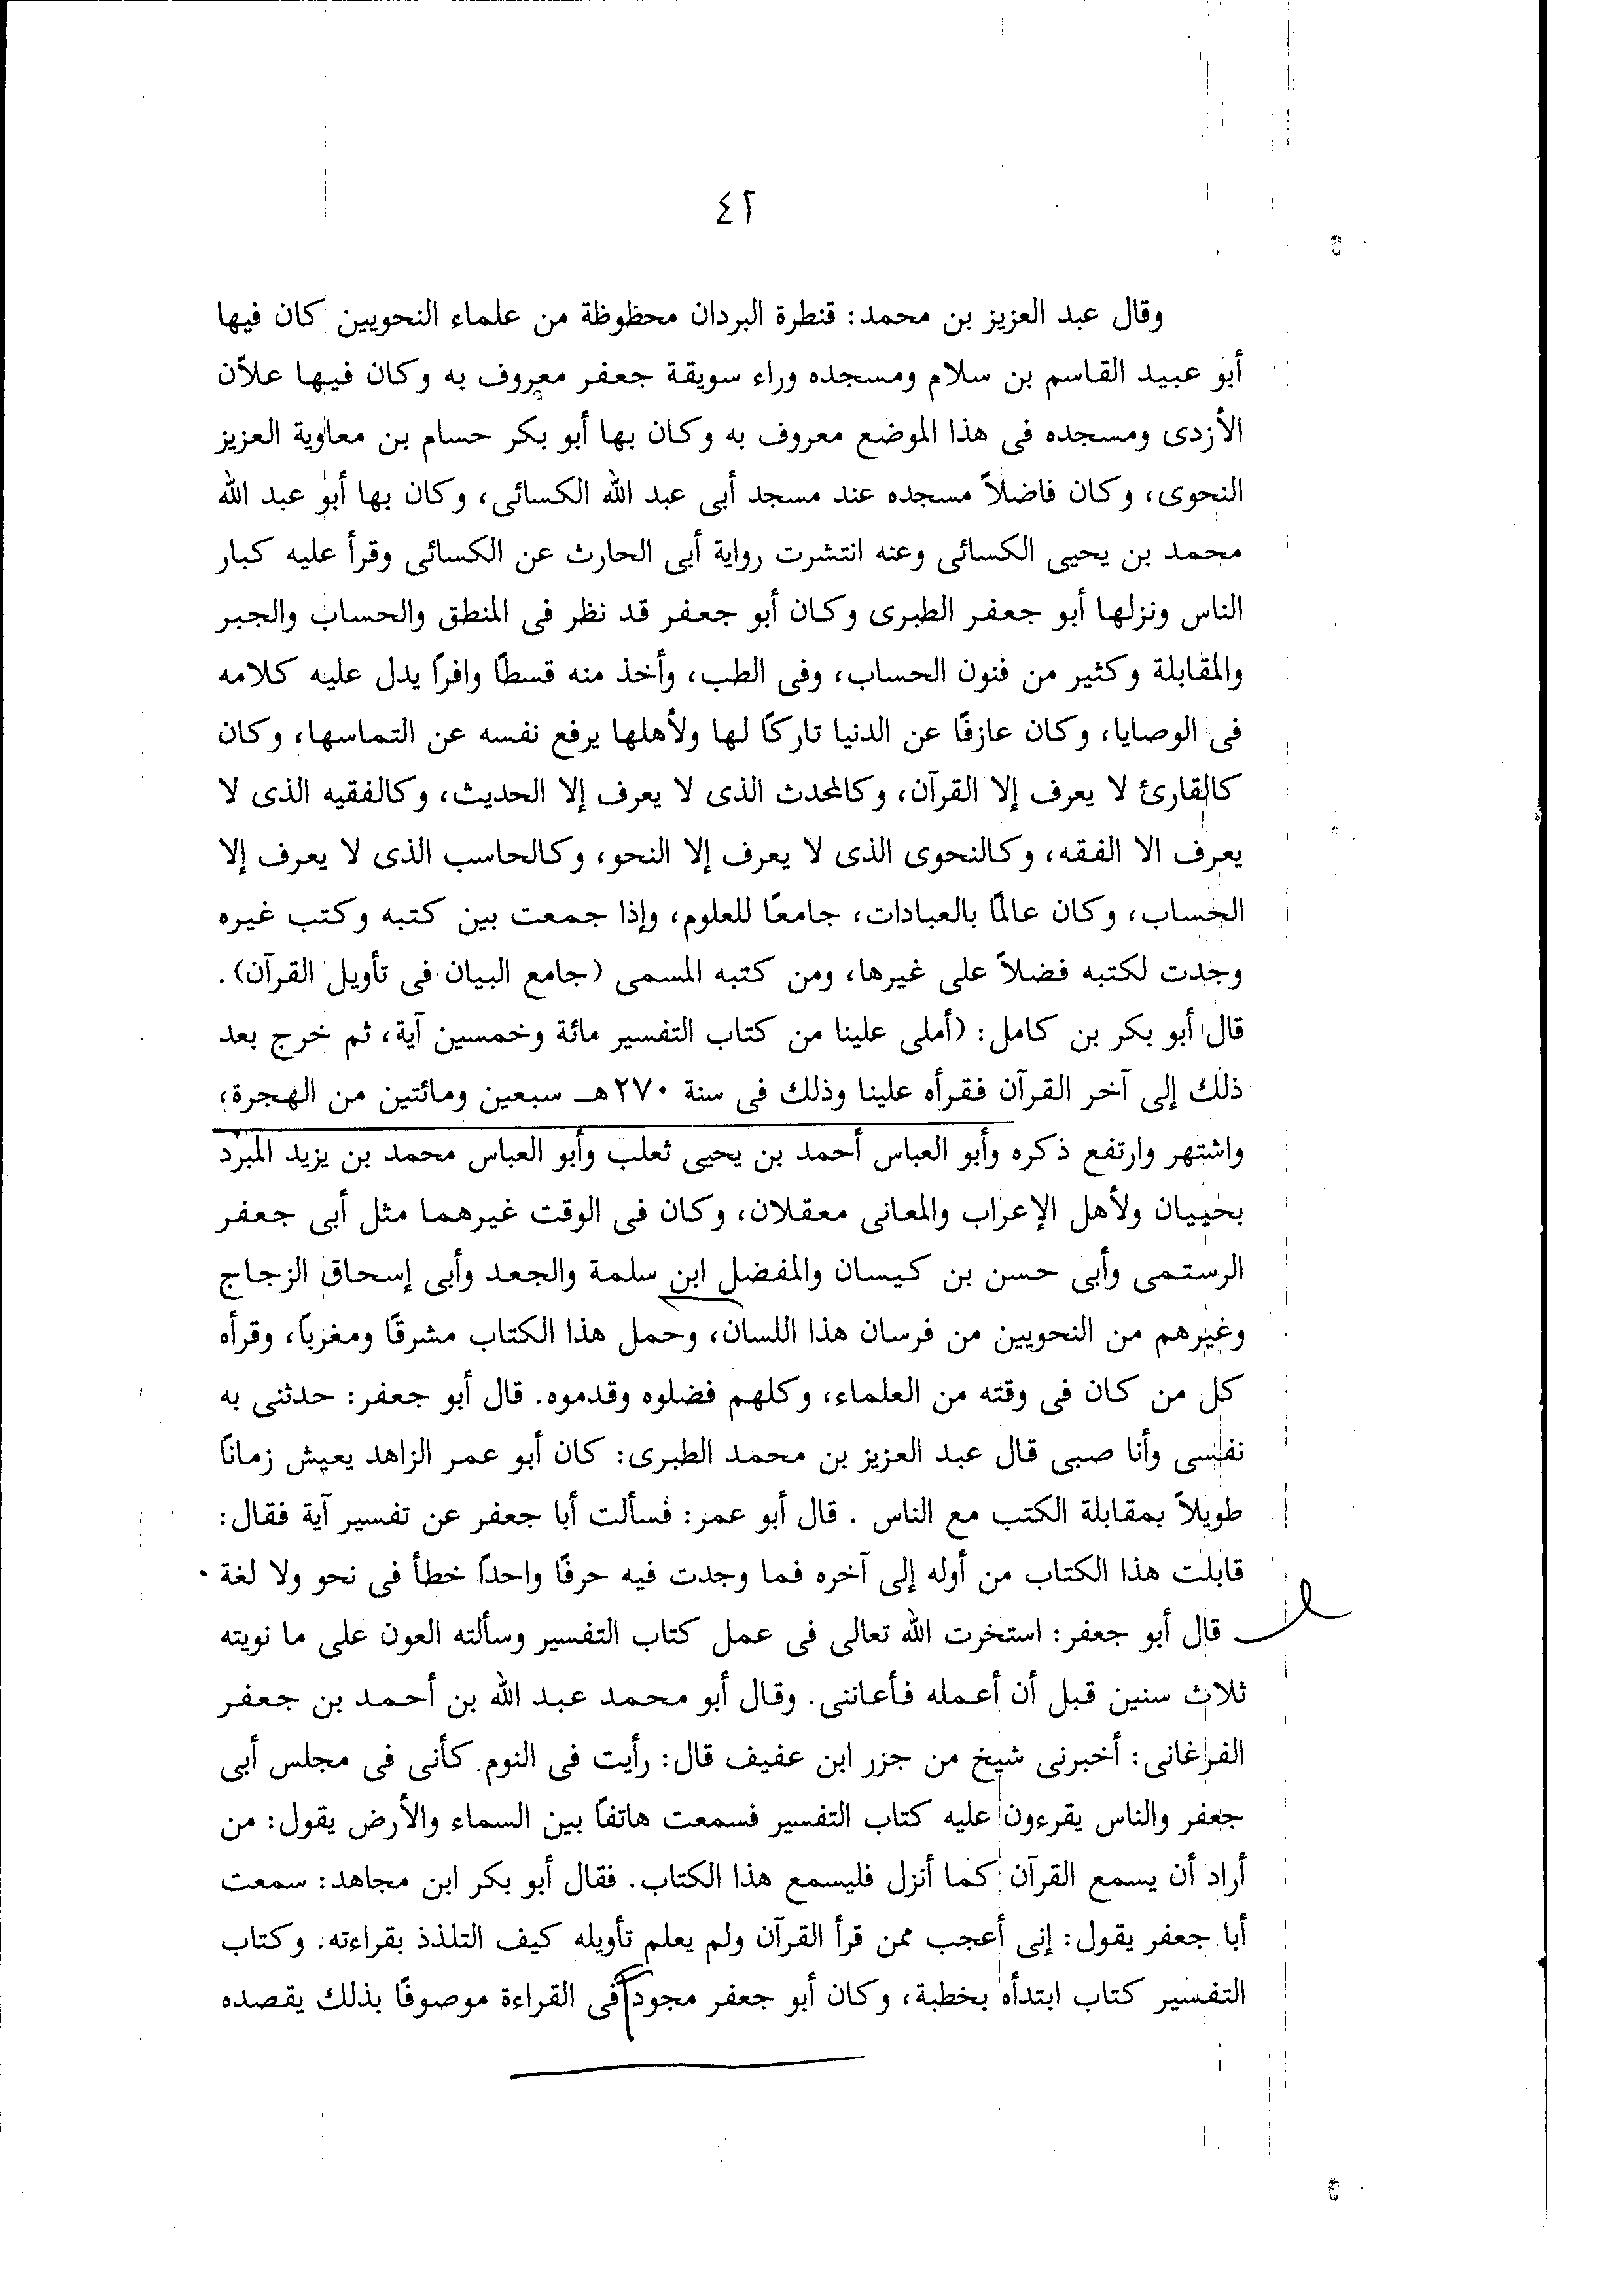 ٤٢
وقال عبد العزيز بن محمد: قنطرة البردان محظوظة من علماء النحويين كان فيها
أبو عبيد القاسم بن سلام ومسجده وراء سويقة جعفر معروف به وكان فيها علاّن
الأزدى ومسجده فى هذا الموضع معروف به وكان بها أبو بكر حسام بن معاوية العزيز
النحوى، وكان فاضلاً مسجده عند مسجد أبى عبد الله الكسائى، وكان بها أبو عبد الله
محمد بن يحيى الكسائى وعنه انتشرت رواية أبى الحارث عن الكسائى وقرأ عليه كبار
الناس ونزلها أبو جعفر الطبرى وكان أبو جعفر قد نظر فى المنطق والحساب والجبر
والمقابلة وكثير من فنون الحساب، وفى الطب، وأخذ منه قسطًا وافرًا يدل عليه كلامه
فى الوصايا، وكان عازفًا عن الدنيا تاركًا لها ولأهلها يرفع نفسه عن التماسها، وكان
كالقارئ لا يعرف إلا القرآن، وكالمحدث الذى لا يعرف إلا الحديث، وكالفقيه الذى لا
يعرف الا الفقه، وكالنحوى الذى لا يعرف إلا النحو، وكالحاسب الذى لا يعرف إلا
الحساب، وكان عالمًا بالعبادات، جامعًا للعلوم، وإذا جمعت بين كتبه وكتب غيره
وجدت لكتبه فضلاً على غيرها، ومن كتبه المسمى (جامع البيان فى تأويل القرآن).
قال أبو بكر بن كامل: (أملى علينا من كتاب التفسير مائة وخمسين آية، ثم خرج بعد
ذلك إلى آخر القرآن فقرأه علينا وذلك فى سنة ٢٧٠هـ سبعين ومائتين من الهجرة،
واشتهر وارتفع ذكره وأبو العباس أحمد بن يحيى ثعلب وأبو العباس محمد بن يزيد المبرد
بحييان ولأهل الإعراب والمعانى معقلان، وكان فى الوقت غيرهما مثل أبى جعفر
الرستمى وأبى حسن بن كيسان والمفضل ابن سلمة والجعد وأبى إسحاق الزجاج
وغيرهم من النحويين من فرسان هذا اللسان، وحمل هذا الكتاب مشرقًا ومغربًا، وقرأه
كل من كان فى وقته من العلماء، وكلهم فضلوه وقدموه. قال أبو جعفر: حدثنى به
نفسى وأنا صبى قال عبد العزيز بن محمد الطبرى: كان أبو عمر الزاهد يعيش زمانًا
طويلاً بمقابلة الكتب مع الناس . قال أبو عمر: فسألت أبا جعفر عن تفسير آية فقال:
قابلت هذا الكتاب من أوله إلى آخره فما وجدت فيه حرفًا واحدًا خطأ فى نحو ولا لغة .
قال أبو جعفر: استخرت الله تعالى فى عمل كتاب التفسير وسألته العون على ما نويته
ثلاث سنين قبل أن أعمله فأعاننى. وقال أبو محمد عبد الله بن أحمد بن جعفر
الفراغانى: أخبرنى شيخ من جزر ابن عفيف قال: رأيت فى النوم كأنى فى مجلس أبى
جعفر والناس يقرءون عليه كتاب التفسير فسمعت هاتفًا بين السماء والأرض يقول: من
أراد أن يسمع القرآن كما أنزل فليسمع هذا الكتاب. فقال أبو بكر ابن مجاهد: سمعت
أبا جعفر يقول: إنى أعجب ممن قرأ القرآن ولم يعلم تأويله كيف التلذذ بقراءته. وكتاب
التفسير كتاب ابتدأه بخطبة، وكان أبو جعفر مجودا فى القراءة موصوفًا بذلك يقصده